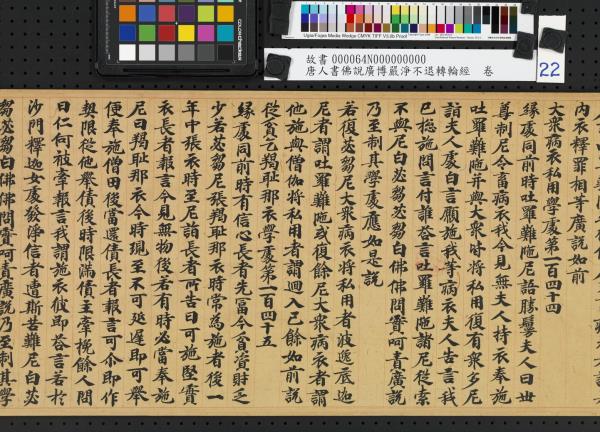 colorchecker
UgraFogra Media Wedge CMYK TIFF V3.0b Proof
故書 000064N000000000
唐人書佛說廣博嚴淨不退轉輪經 卷
22
内衣釋罪相等廣說如前
大衆病衣私用學處第一百四十四
緣處同前時吐羅難陁尼詣勝鬘夫人曰世
尊制尼令畜病衣我今見無夫人持衣奉施
吐羅難陁并與大衆時將私用復有衆多尼
詣夫人處白言願施我等病衣夫人告言我
已捴施問言付誰荅言吐羅難陁諸尼從索
不與尼白苾芻苾芻白佛佛問實呵責廣說
乃至制其學處應如是說
若復苾芻尼大衆病衣將私用者波逸底迦
尼者謂吐羅難陁或復餘尼大衆病衣者謂
他施與僧伽將私用者謂迴入已餘如前說
從貧乞羯耻那衣學處第一百四十五
緣處同前時有信心長者先富今貧資財乏
少若苾芻尼張羯耻那衣時常為施者後一
年中張衣時至尼詣長者所告曰可施堅實
衣長者報言今見無物後若有時必當奉施
尼曰羯耻那衣今時現至不可延遲即可舉
便奉施僧田後當還債長者報言可尒即作
契限從他舉債後時限滿債主牽挽餘人問
曰仁何被牽報言我謂施衣彼即荅言若於
沙門釋迦女處發淨信者遭斯苦難尼白苾
芻苾芻白佛佛問實呵責廣說乃至制其學